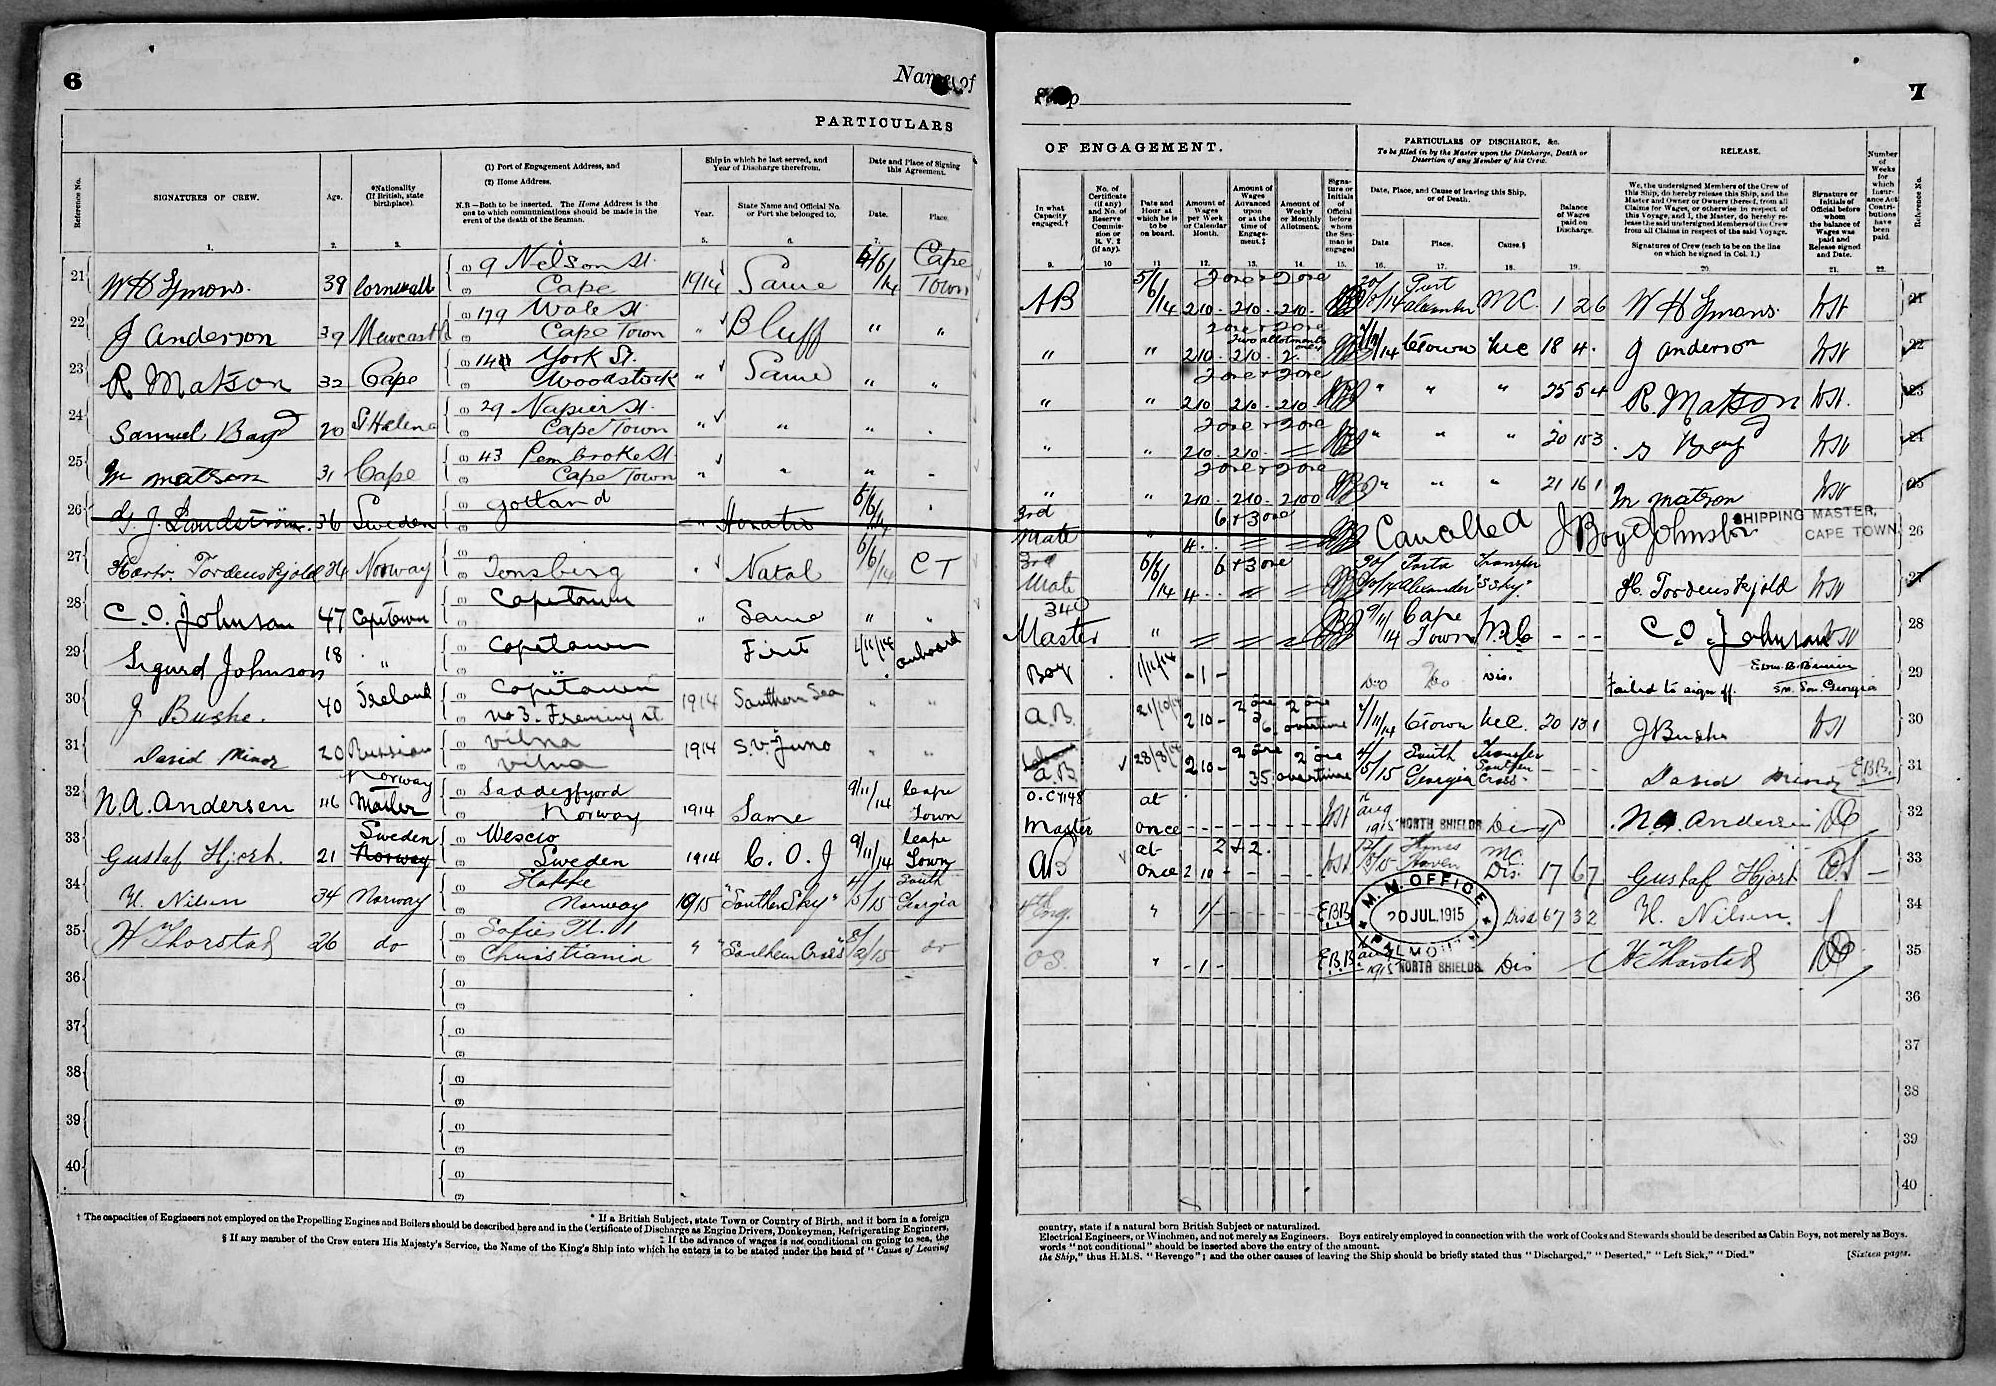 6
Name of
PARTICULARS
Reference No.
SIGNATURES OF CREW.
Age.
*Nationality (If British, state birthplace).
(1) Port of Engagement Address, and
(2) Home Address.
N.B.—Both to be inserted. The Home Address is the ones to which communications should be made in the event of the death of the Seaman.
Ship in which he last served, and Year of Discharge therefrom.
Year.
State Name and Official No. or Port she belonged to.
Date and Place of Signing this Agreement.
Date.
Place.
1. 2. 3. 4. 5. 6. 7.
21 W H Symons. 39 Cornwall (1) 9 Nelson St. (2) Cape 1914 Same 5/6/14 Cape Town
22 J Anderson 39 Newcastle (1) 179 Wale St (2) Cape Town " Bluff " "
23 R Matson 32 Cape (1) York St. (2) Woodstock " Same " "
24 Samuel 20 St Helena (1) 29 Napier St. (2) Cape Town " " "
25 M Matson 31 Cape (1) 43 Pembroke St. (2) Cape Town " " " "
26 G. J. Lundström. 36 Sweden (1) Gotland (2) " Horatio
27 Tordenskjold Norway (1) (2) Tonsberg " Natal 6/6/14 C T
28 C. O. Johnson 47 Capetown (1) Capetown (2) " Same " "
29 Sigurd Johnson 18 " (1) Capetown (2) First onboard
30 J Bushe. 40 Ireland (1) Capetown (2) No 3. 1914 Southern Sea " "
31 David Minor 20 Russian (1) Vilna (2) Vilna 1914 S.V. Juno " "
32 N. A. Andersen Norway (1) Sandefjord (2) Norway 1914 Same 9/11/14 Cape Town
33 Gustaf Hjort. 21 Sweden Norway (1) (2) Sweden 1914 C. O. J 9/11/14 Cape Town
34 H. Nilsen 34 Norway (1) (2) Norway "Southern Sky" South Georgia
35 H Thorstad 26 do (1) (2) Christiania " "Southern Cross" do
36 (1) (2)
37 (1) (2)
38 (1) (2)
39 (1) (2)
40 (1) (2)
* If a British Subject, state Town or Country of Birth, and if born in a foreign
† The capacities of Engineers not employed on the Propelling Engines and Boilers should be described here and in the Certificate of Discharge as Engine Drivers, Donkeymen, Refrigerating Engineers,
‡ If the advance of wages is not conditional on going to sea, the
§ If any member of the Crew enters His Majesty's Service, the Name of the King's Ship into which he enters is to be stated under the head of "Cause of Leaving
Ship
7
OF ENGAGEMENT.
PARTICULARS OF DISCHARGE, &c.
To be filled in by the Master upon the Discharge, Death or Desertion of any Member of his Crew.
RELEASE.
In what Capacity engaged.†
No. of Certificate (if any) and No. of Reserve Commission or R. V. 2 (if any).
Date and Hour at which he is to be on board.
Amount of Wages per Week or Calendar Month.
Amount of Wages Advanced upon or at the time of Engagement.‡
Amount of Weekly or Monthly Allotment.
Signature or Initials of Official before whom the Seaman is engaged
Date, Place, and Cause of leaving this Ship, or of Death.
Date
Place.
Cause.§
Balance of Wages paid on Discharge.
We, the undersigned Members of the Crew of this Ship, do hereby release this Ship, and the Master and Owner or Owners thereof, from all Claims for Wages, or otherwise in respect of this Voyage, and I, the Master, do hereby release the said undersigned Members of the Crew from all Claims in respect of the said Voyage.
Signatures of Crew (each to be on the line on which he signed in Col. 1.)
Signature or Initials of Official before whom the balance of Wages was paid and Release signed and Date.
Number of Weeks for which Insurance Act Contributions have been paid.
Reference No.
9. 10 11. 12. 13. 14. 15. 16. 17. 18. 19. 20. 21. 22.
AB 5/6/14 2 ore + 2 ore 210. 210. 210. Port Alexander M C. 1 2 6 W H Symons. 21
" " 2 ore + 2 ore Two allotments 210. 210. 2. CTown 18 4. J Anderson 22
" " 2 ore + 2 ore 210 210. 210. " " " 25 5 4 R Matson 23
" " 2 ore + 2 ore 210. 210. " " " 20 15 3 24
" " 2 ore + 2 ore 210. 210. 2100 " " " 21 16 1 M Matson 25
3rd Mate 6 + 3 ore 4. Cancelled J Boyd Johnston SHIPPING MASTER, CAPE TOWN. 26
3rd Mate 6/6/14 6 + 3 ore 4. Alexander Transfer "S Sky". H. Tordenskjold 27
340 Master " 9/11/14 Cape Town - - - C. O. Johnson 28
Boy 1/11/14 - 1 - Do Do Dis. Failed to sign off. So. Georgia 29
A.B. 21/10/14 2 10 - CTown 20 13 1 J Bushe 30
A.B. 28/8/14 2 10 - 35 overtime South Georgia Transfer Southern Cross - - - David Minor E.B.B. 31
Master at once Aug 1915 NORTH SHIELDS N A. Andersen 32
AB at once 2 + 2. 2 10 - - - Dis. 17 6 7 Gustaf Hjort 33
" E.B.B. M. M. OFFICE 20 JUL. 1915 FALMOUTH Disd 67 3 2 H. Nilsen. 34
O S. " - 1 - E.B.B. Aug 1915 NORTH SHIELDS Dis H Thorstad 35
36
37
38
39
40
country, state if a natural born British Subject or naturalized.
Electrical Engineers, or Winchmen, and not merely as Engineers. Boys entirely employed in connection with the work of Cooks and Stewards should be described as Cabin Boys, not merely as Boys.
words "not conditional" should be inserted above the entry of the amount.
the Ship," thus H.M.S. "Revenge"; and the other causes of leaving the Ship should be briefly stated thus "Discharged," "Deserted," "Left Sick," "Died."
[Sixteen pages.